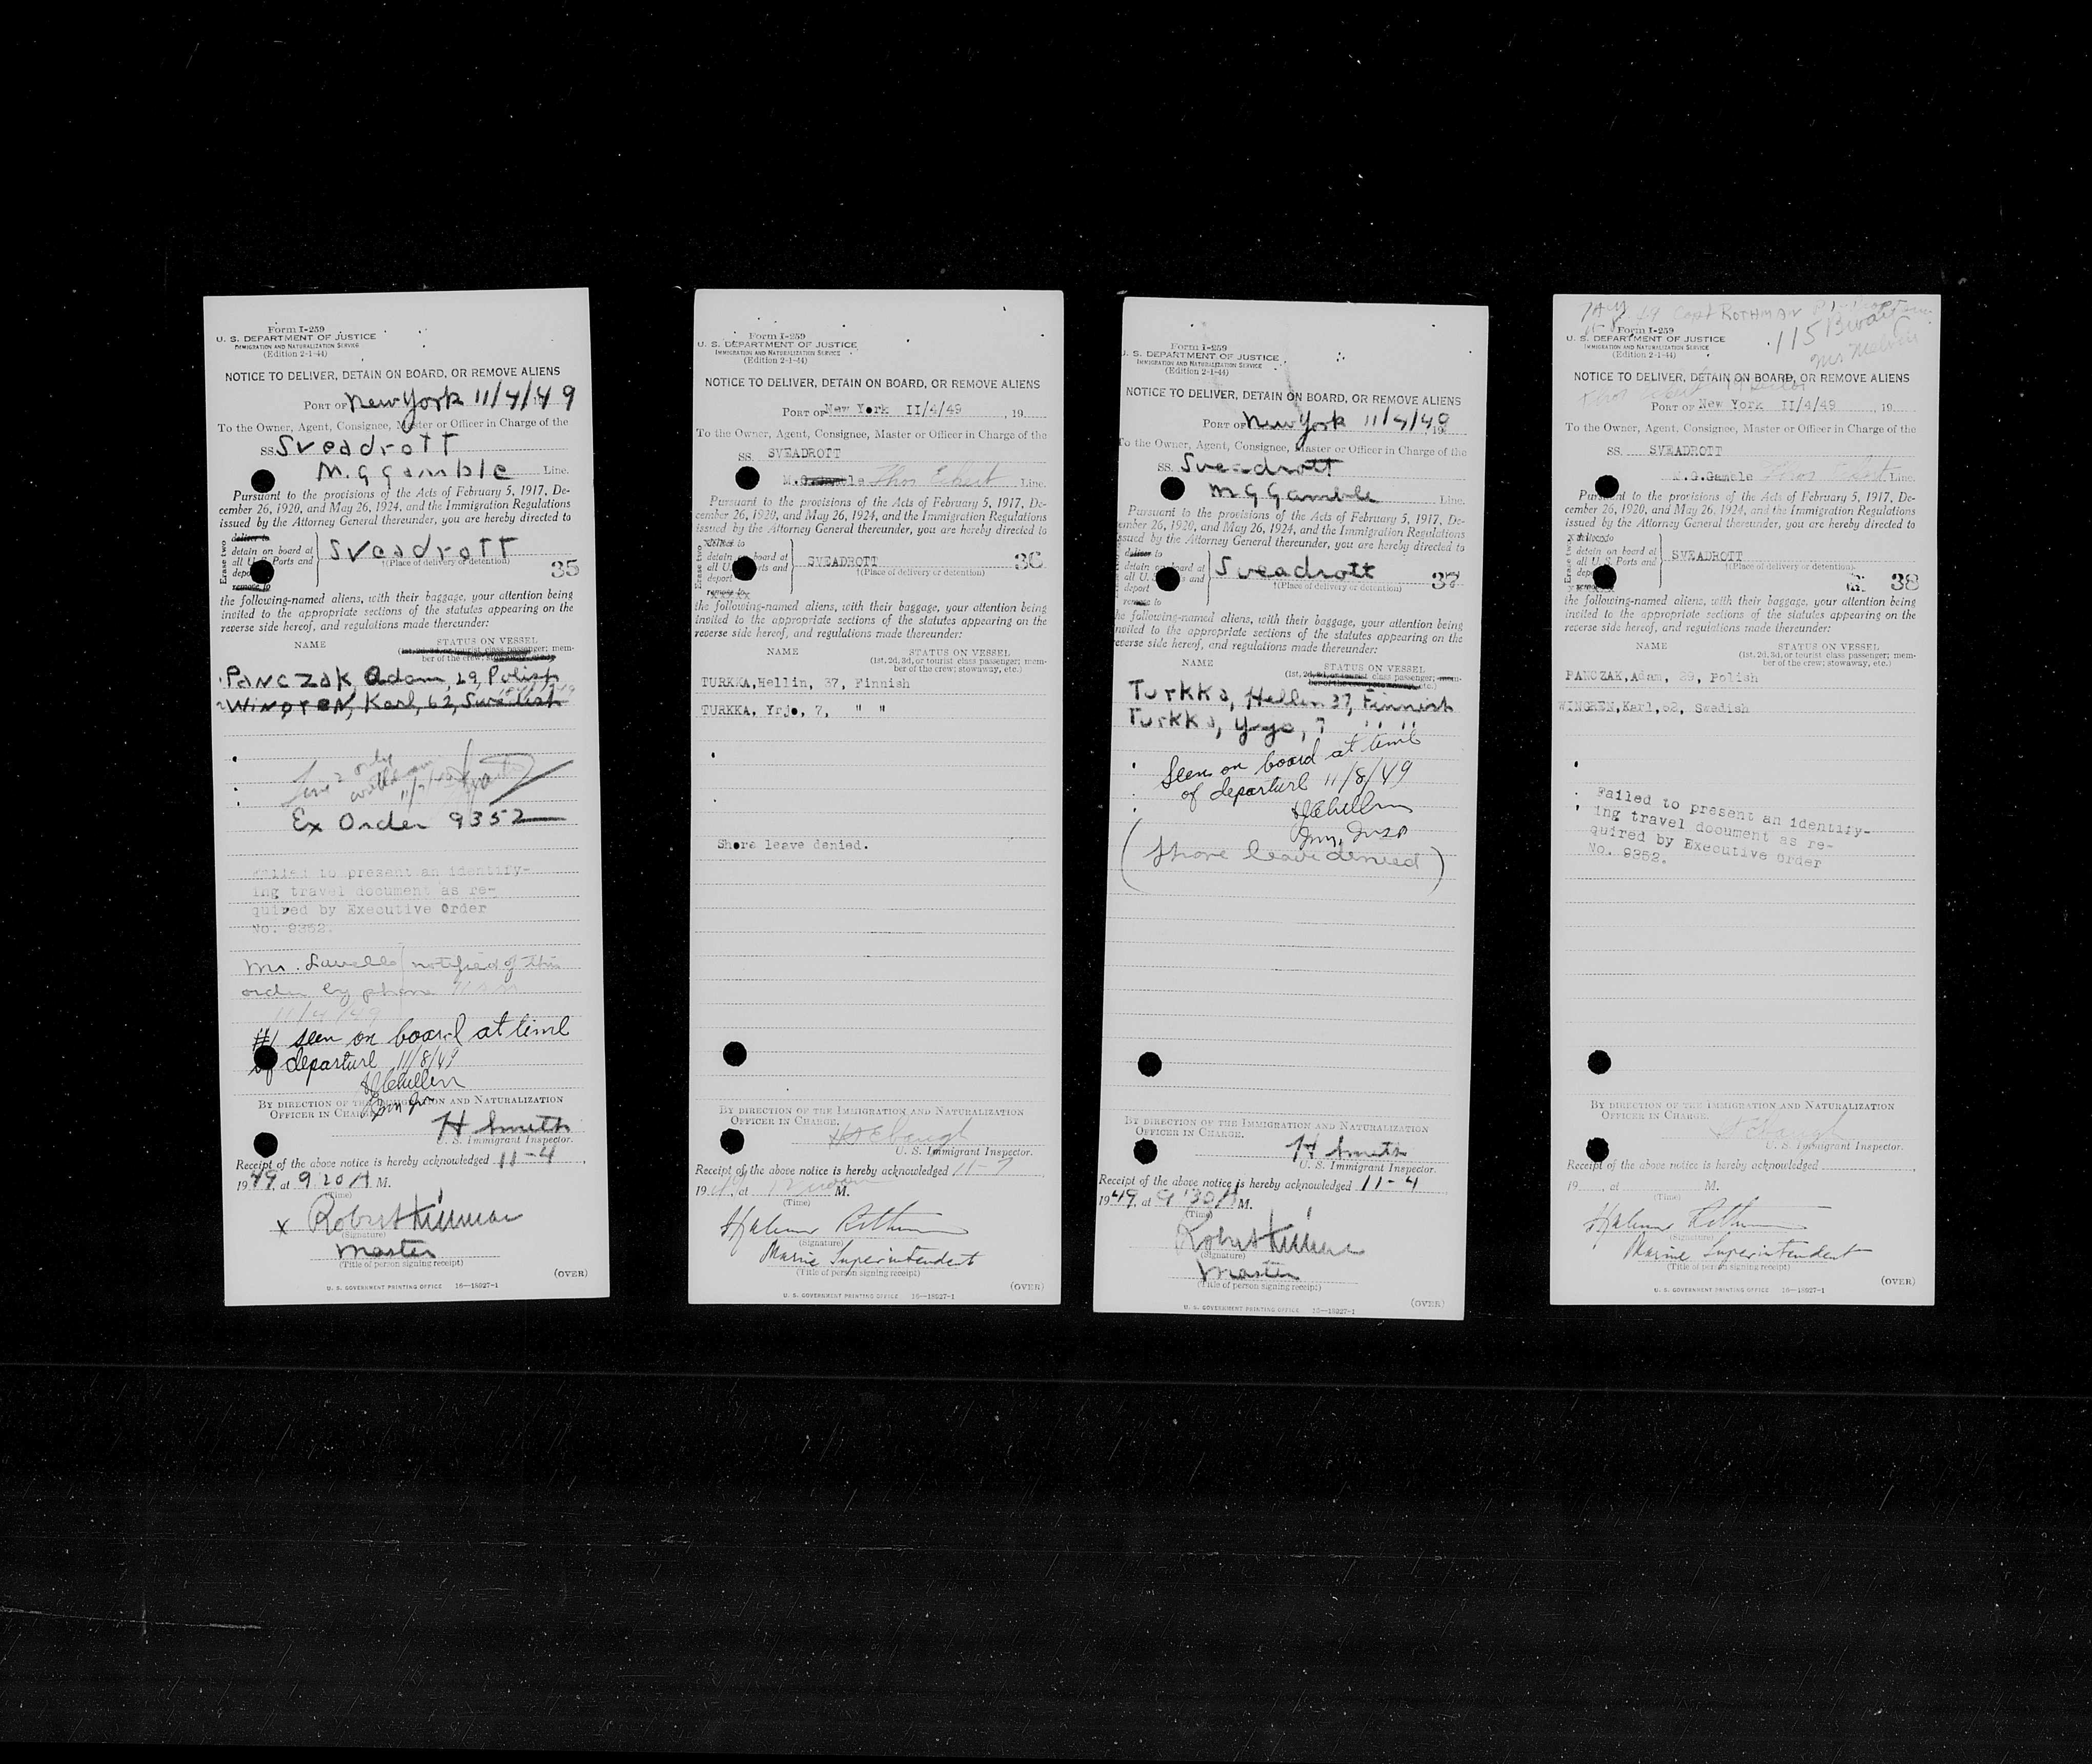 Form I-259
U. S. DEPARTMENT OF JUSTICE
IMMIGRATION AND NATURALIZATION SERVICE
(Edition 2-1-44)
NOTICE TO DELIVER, DETAIN ON BOARD, OR REMOVE ALIENS
PORT OF New York 11/4/49
To the Owner, Agent, Consignee, Master or Officer in Charge of the
SS. Sveadrott
M. G Gamble Line.
Pursuant to the provisions of the Acts of February 5, 1917, De-
cember 26, 1920, and May 26, 1924, and the Immigration Regulations
issued by the Attorney General thereunder, you are hereby directed to
Erase two
deliver to
detain on board at
all U. S. Ports and
depo
remove to
Sveadrott
†(Place of delivery or detention)
35
the following-named aliens, with their baggage, your attention being
invited to the appropriate sections of the statutes appearing on the
reverse side hereof, and regulations made thereunder:
NAME
STATUS ON VESSEL
(1st, 2d, 3d, or tourist class passenger; mem-
ber of the crew; stowaway, etc.)
1 PANCZAK Adam, 29, Polish
2 WINGREN, Karl, 62, Swedish
Line 2 only
withdrawn
Ex Order 9352
Failed to present an identify-
ing travel document as re-
quired by Executive Order
No. 9352.
Mr. Lavelle notified of this
order by phone
11/4/49
#1 seen on board at time
of departure 11/8/49
BY DIRECTION OF THE IMMIGRATION AND NATURALIZATION
OFFICER IN CHARGE.
H Smith
U. S. Immigrant Inspector.
Receipt of the above notice is hereby acknowledged 11-4
1949, at 9 20 A M.
(Time)
x Robert
(Signature)
Master
(Title of person signing receipt)
(OVER)
U. S. GOVERNMENT PRINTING OFFICE 16—18927-1
Form I-259
U. S. DEPARTMENT OF JUSTICE
IMMIGRATION AND NATURALIZATION SERVICE
(Edition 2-1-44)
NOTICE TO DELIVER, DETAIN ON BOARD, OR REMOVE ALIENS
PORT OF New York II/4/49, 19
To the Owner, Agent, Consignee, Master or Officer in Charge of the
SS. SVEADROTT
M.Gamble Thos Eckert Line.
Pursuant to the provisions of the Acts of February 5, 1917, De-
cember 26, 1920, and May 26, 1924, and the Immigration Regulations
issued by the Attorney General thereunder, you are hereby directed to
Erase two
deliver to
detain on board at
all U. S. Ports and
depart
remove to
SVEADROTT
†(Place of delivery or detention)
36
the following-named aliens, with their baggage, your attention being
invited to the appropriate sections of the statutes appearing on the
reverse side hereof, and regulations made thereunder:
NAME
STATUS ON VESSEL
(1st, 2d, 3d, or tourist class passenger; mem-
ber of the crew; stowaway, etc.)
TURKKA,Hellin, 37, Finnish
TURKKA, Yrjo, 7, " "
Shore leave denied.
BY DIRECTION OF THE IMMIGRATION AND NATURALIZATION
OFFICER IN CHARGE.
U. S. Immigrant Inspector.
Receipt of the above notice is hereby acknowledged 11-7
1949, at 12 noon M.
(Time)
Hjalmar Rothman
(Signature)
Marine Superintendent
(Title of person signing receipt)
(OVER)
U. S. GOVERNMENT PRINTING OFFICE 16—18927-1
Form I-259
U. S. DEPARTMENT OF JUSTICE
IMMIGRATION AND NATURALIZATION SERVICE
(Edition 2-1-44)
NOTICE TO DELIVER, DETAIN ON BOARD, OR REMOVE ALIENS
PORT OF New York 11/4/49
To the Owner, Agent, Consignee, Master or Officer in Charge of the
SS. Sveadrott
M G Gamble Line.
Pursuant to the provisions of the Acts of February 5, 1917, De-
cember 26, 1920, and May 26, 1924, and the Immigration Regulations
issued by the Attorney General thereunder, you are hereby directed to
deliver to
detain on board at
all U. S. Ports and
depart
remove to
Sveadrott
†(Place of delivery or detention)
37
the following-named aliens, with their baggage, your attention being
invited to the appropriate sections of the statutes appearing on the
reverse side hereof, and regulations made thereunder:
NAME
STATUS ON VESSEL
(1st, 2d, 3d, or tourist class passenger; mem-
ber of the crew; stowaway, etc.)
Turkka, Hellin 37, Finnish
Turkka, Yrjo, 7 " "
Seen on board at time
of departure 11/8/49
Imm. Insp
(Shore leave denied)
BY DIRECTION OF THE IMMIGRATION AND NATURALIZATION
OFFICER IN CHARGE.
H Smith
U. S. Immigrant Inspector.
Receipt of the above notice is hereby acknowledged 11-4
1949, at 9 30 A. M.
(Time)
Robert
(Signature)
Master
(Title of person signing receipt)
(OVER)
U. S. GOVERNMENT PRINTING OFFICE 16—18927-1
Capt ROTHMAN
115 Broad
Mr Melvin
Form I-259
U. S. DEPARTMENT OF JUSTICE
IMMIGRATION AND NATURALIZATION SERVICE
(Edition 2-1-44)
NOTICE TO DELIVER, DETAIN ON BOARD, OR REMOVE ALIENS
PORT OF New York II/4/49, 19
To the Owner, Agent, Consignee, Master or Officer in Charge of the
SS. SVEADROTT
M.G.Gamble Thos Eckert Line.
Pursuant to the provisions of the Acts of February 5, 1917, De-
cember 26, 1920, and May 26, 1924, and the Immigration Regulations
issued by the Attorney General thereunder, you are hereby directed to
Erase two
deliver to
detain on board at
all U. S. Ports and
depa
remove to
SVEADROTT
†(Place of delivery or detention)
38
the following-named aliens, with their baggage, your attention being
invited to the appropriate sections of the statutes appearing on the
reverse side hereof, and regulations made thereunder:
NAME
STATUS ON VESSEL
(1st, 2d, 3d, or tourist class passenger; mem-
ber of the crew; stowaway, etc.)
PANCZAK,Adam, 29, Polish
WINGREN,Karl,62, Swedish
Failed to present an identify-
ing travel document as re-
quired by Executive Order
No. 9352.
BY DIRECTION OF THE IMMIGRATION AND NATURALIZATION
OFFICER IN CHARGE.
U. S. Immigrant Inspector.
Receipt of the above notice is hereby acknowledged
19, at M.
(Time)
Hjalmar Rothman
(Signature)
Marine Superintendent
(Title of person signing receipt)
(OVER)
U. S. GOVERNMENT PRINTING OFFICE 16—18927-1